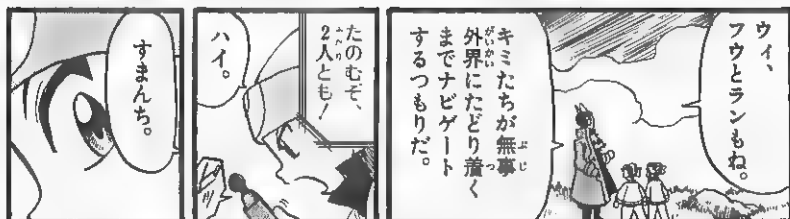 ウィ、
フウとランもね。
キミたちが無事
外界にたどり着く
までナビゲート
するつもりだ。
たのむぞ、
2人とも!
ハイ。
すまんち。